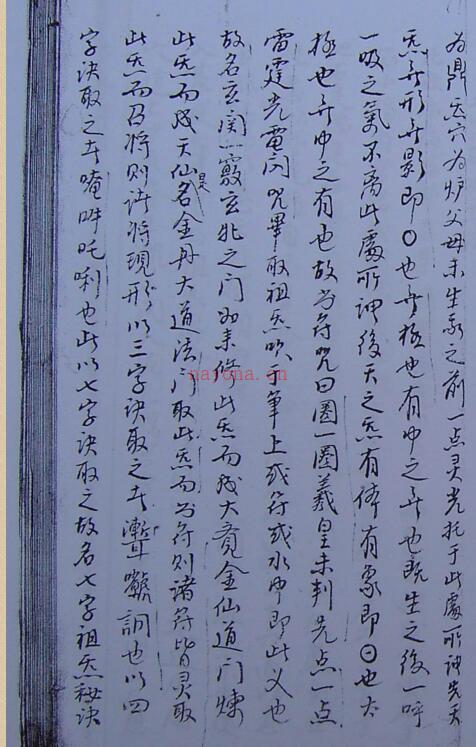 为鼎玄穴为炉父母未生我之前一点灵光托于此处所谓先天
炁无形无影即○也无极也有中之无也既生之后一呼
一吸之氣不离此處所谓後天之炁有体有象即⊙也太
极也无中之有也故书符咒曰圈一圈羲皇未判先点一点
雷霆光電闪咒畢取祖炁吹于筆上或符或水中即此义也
故名玄関一竅玄牝之门如来修此炁而成大觉金仙道门煉
此炁而成天仙是名金丹大道法门取此炁而书符则诸符皆灵取
此炁而召将则诸将现形以三字诀取之者
也以四
字诀取之者唵吽吒唎也此以七字诀取之故名七字祖炁秘诀
narona.cn